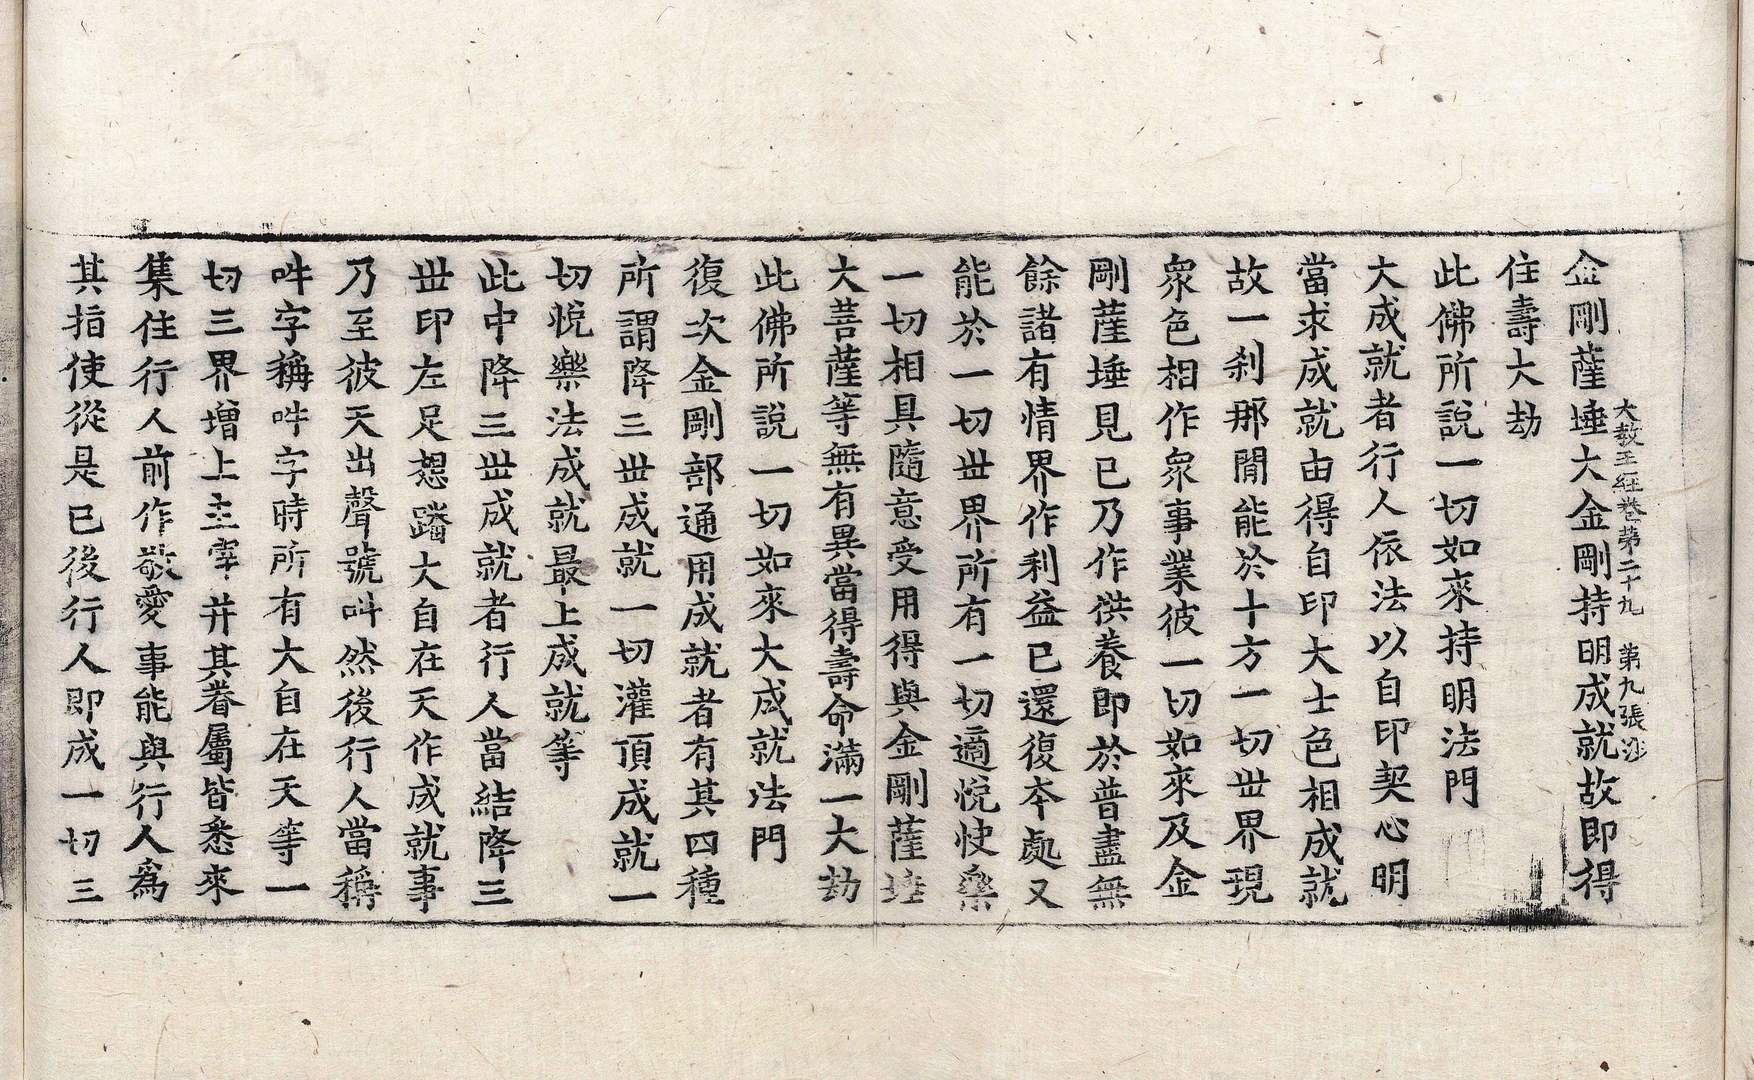 大教王經卷第二十九　第九張沙
金剛薩埵大金剛持明成就故即得
住壽大劫
此佛所說一切如來持明法門
大成就者行人依法以自印契心明
當求成就由得自印大士色相成就
故一刹那間能於十方一切世界現
眾色相作眾事業彼一切如來及金
剛薩埵見已乃作供養即於普盡無
餘諸有情界作利益已還復本處又
能於一切世界所有一切適悅快樂
一切相具隨意受用得與金剛薩埵
大菩薩等無有異當得壽命滿一大劫
此佛所說一切如來大成就法門
復次金剛部通用成就者有其四種
所謂降三世成就一切灌頂成就一
切悅樂法成就最上成就等
此中降三世成就者行人當結降三
世印左足想蹯大自在天作成就事
乃至彼天出聲號呌然後行人當稱
吽字稱吽字時所有大自在天等一
切三界增上主宰并其眷屬皆悉來
集住行人前作敬愛事能與行人為
其指使從是已後行人即成一切三